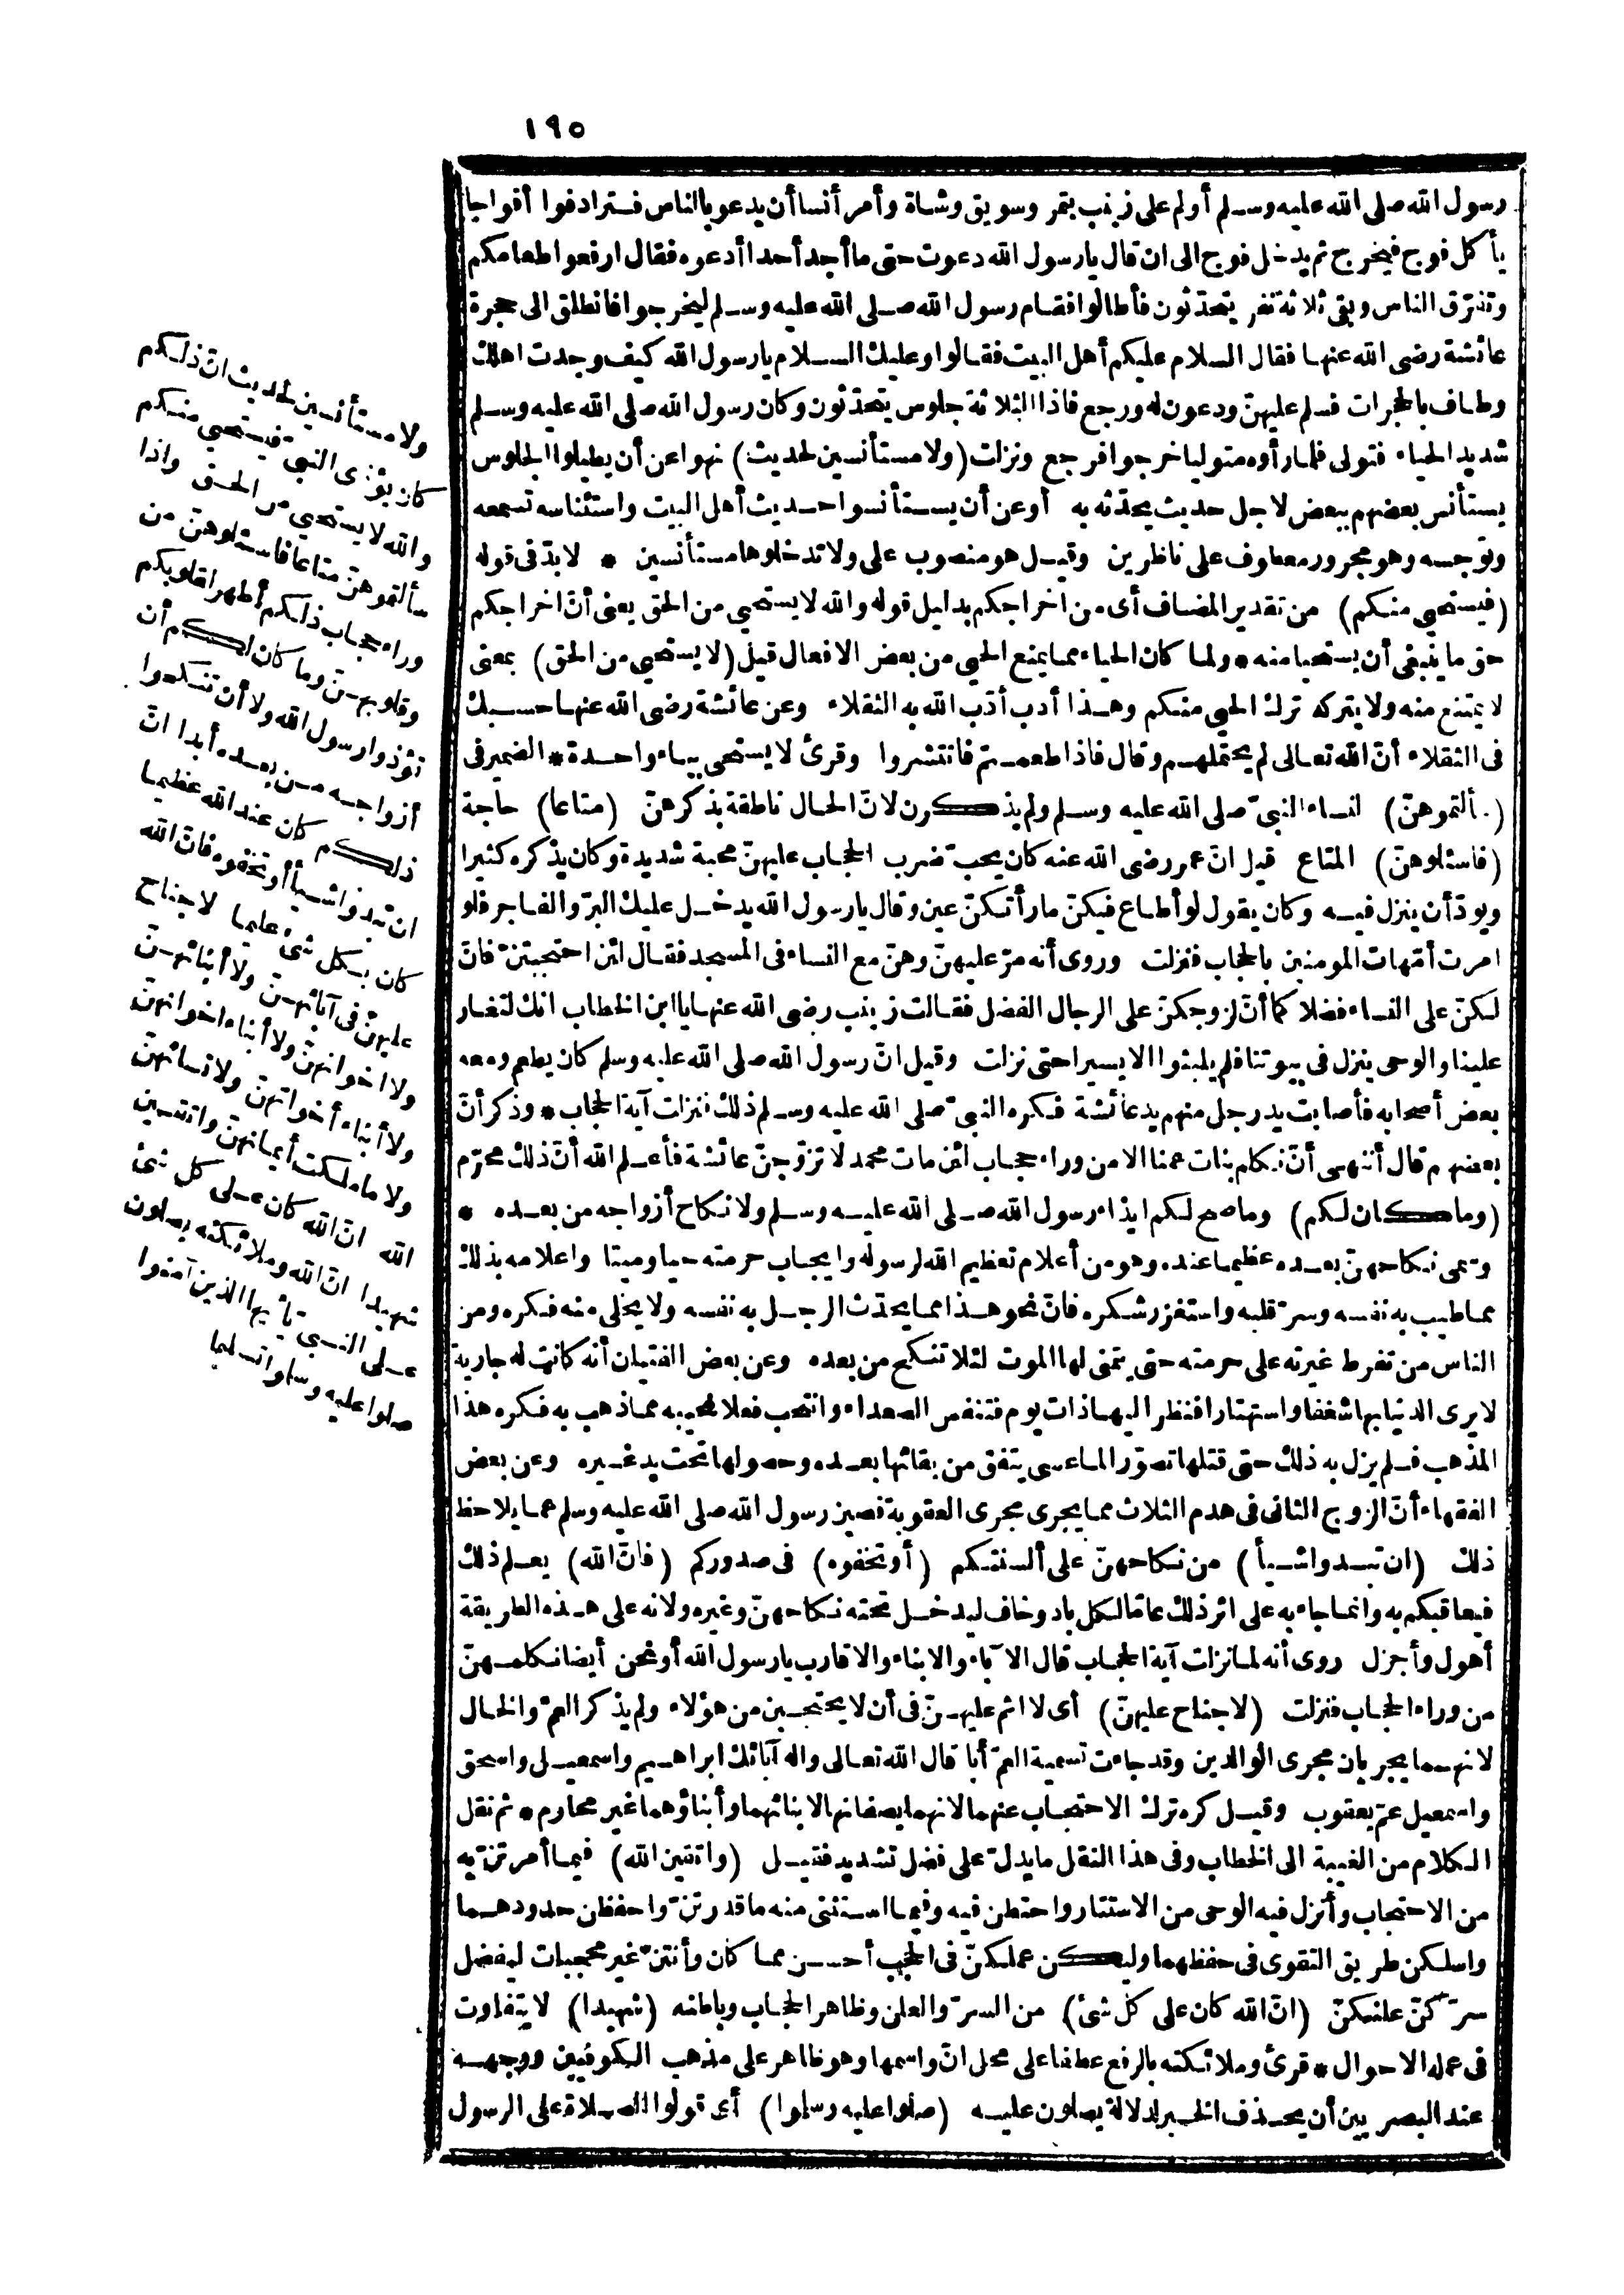 ١٩٥
رسول الله صلى الله عليه وسلم أولم على زينب بتمر وسويق وشاة وأمر أنسا أن يدعو بالناس فترادفوا أفواجا
يأكل فوج فيخرج ثم يدخل فوج الى ان قال يا رسول الله دعوت حتى ما أجد أحدا أدعوه فقال ارفعوا طعامكم
وتفرّق الناس وبقى ثلاثة نفر يتحدّثون فأطالوا فقام رسول الله صلى الله عليه وسلم ليخرجوا فانطلق الى حجرة
عائشة رضى الله عنها فقال السلام عليكم أهل البيت فقالوا وعليك السلام يا رسول الله كيف وجدت اهلك
وطاف بالحجرات فسلم عليهنّ ودعون له ورجع فاذا الثلاثة جلوس يتحدّثون وكان رسول الله صلى الله عليه وسلم
شديد الحياء فتولى فلما رأوه متوليا خرجوا فرجع ونزلت (ولا مستأنسين لحديث) نهوا عن أن يطيلوا الجلوس
يستأنس بعضهم ببعض لاجل حديث يحدّثه به أو عن أن يستأنسوا حديث أهل البيت واستئناسه تسمعه
وتوجسه وهو مجرور معطوف على ناظرين وقيل هو منصوب على ولا تدخلوها مستأنسين * لابدّ فى قوله
(فيستحيي منكم) من تقدير المضاف أى من اخراجكم بدليل قوله والله لا يستحيي من الحق يعنى أنّ اخراجكم
حق ما ينبغى أن يستحيا منه * ولما كان الحياء مما يمنع الحيي من بعض الافعال قيل (لا يستحيي من الحق) بمعنى
لا يمتنع منه ولا يتركه ترك الحيي منكم وهذا أدب أدّب الله به الثقلاء وعن عائشة رضى الله عنها حسبك
فى الثقلاء أنّ الله تعالى لم يحتملهم وقال فاذا طعمتم فانتشروا وقرئ لا يستحى بياء واحدة * الضمير فى
(سألتموهنّ) لنساء النبىّ صلى الله عليه وسلم ولم يذكرن لانّ الحال ناطقة بذكرهنّ (متاعا) حاجة
(فاسئلوهنّ) المتاع قيل انّ عمر رضى الله عنه كان يحبّ ضرب الحجاب عليهنّ محبة شديدة وكان يذكره كثيرا
ويودّ أن ينزل فيه وكان يقول لو أطاع فيكنّ ما رأتكنّ عين وقال يا رسول الله يدخل عليك البرّ والفاجر فلو
امرت أمّهات المومنين بالحجاب فنزلت وروى أنه مرّ عليهنّ وهنّ مع النساء فى المسجد فقال لئن احتجبتنّ فانّ
لكنّ على النساء فضلا كما أنّ لزوجكنّ على الرجال الفضل فقالت زينب رضى الله عنها يا ابن الخطاب انك لتغار
علينا والوحى ينزل فى بيوتنا فلم يلبثوا الا يسيرا حتى نزلت وقيل انّ رسول الله صلى الله عليه وسلم كان يطعم ومعه
بعض أصحابه فأصابت يد رجل منهم يد عائشة فكره النبىّ صلى الله عليه وسلم ذلك فنزلت آية الحجاب * وذكر أنّ
بعضهم قال أننهى أنّ نكلم بنات عمنا الا من وراء حجاب لئن مات محمد لاتزوّجنّ عائشة فأعلم الله أنّ ذلك محرّم
(وما كان لكم) وما صح لكم ايذاء رسول الله صلى الله عليه وسلم ولا نكاح أزواجه من بعده *
وسمى نكاحهنّ بعده عظيما عنده وهو من أعلام تعظيم الله لرسوله وايجاب حرمته حيا وميتا واعلامه بذلك
مما طيب به نفسه وسرّ قلبه واستغزر شكره فانّ نحو هذا مما يحدّث الرجل به نفسه ولا يخلى منه فكره ومن
الناس من تفرط غيرته على حرمته حتى يتمنى لها الموت لئلا تنكح من بعده وعن بعض الفتيان أنه كانت له جارية
لا يرى الدنيا بها شغفا واستهتارا فنظر اليها ذات يوم فتنفس الصعداء وانتحب فعلا نحيبه مما ذهب به فكره هذا
المذهب فلم يزل به ذلك حتى قتلها تصوّرا لما عسى يتفق من بقائها بعده وحصولها تحت يد غيره وعن بعض
الفقهاء أنّ الزوج الثانى فى هدم الثلاث مما يجرى مجرى العقوبة فصين رسول الله صلى الله عليه وسلم عما يلاحظ
ذلك (ان تبدوا شيأ) من نكاحهنّ على ألسنتكم (أو تخفوه) فى صدوركم (فانّ الله) يعلم ذلك
فيعاقبكم به وانما جاء به على اثر ذلك عامّا لكل باد وخاف ليدخل تحته نكاحهنّ وغيره ولانه على هذه الطريقة
أهول وأجزل روى أنه لما نزلت آية الحجاب قال الآباء والابناء والاقارب يا رسول الله أو نحن أيضا نكلمهنّ
من وراء الحجاب فنزلت (لا جناح عليهنّ) أى لا اثم عليهنّ فى أن لا يحتجبن من هؤلاء ولم يذكر العمّ والخال
لانهما يجريان مجرى الوالدين وقد جاءت تسمية العمّ أبا قال الله تعالى واله آبائك ابراهيم واسمعيل واسحق
واسمعيل عمّ يعقوب وقيل كره ترك الاحتجاب عنهما لانهما يصفانها لابنائهما وأبناؤهما غير محارم * ثم نقل
الكلام من الغيبة الى الخطاب وفى هذا النقل ما يدلّ على فضل تشديد فقيل (واتقين الله) فيما أمرتنّ به
من الاحتجاب وأنزل فيه الوحى من الاستتار واحتطن فيه وفيما استثنى منه ما قدرتنّ واحفظن حدودهما
واسلكن طريق التقوى فى حفظهما وليكن عملكنّ فى الحجب أحسن مما كان وأنتنّ غير محجبات ليفضل
سرّكنّ علنكنّ (انّ الله كان على كل شئ) من السرّ والعلن وظاهر الحجاب وباطنه (شهيدا) لا يتفاوت
فى علمه الاحوال * قرئ وملائكته بالرفع عطفا على محل انّ واسمها وهو ظاهر على مذهب الكوفيين ووجهه
عند البصريين أن يحذف الخبر لدلالة يصلون عليه (صلوا عليه وسلموا) أى قولوا الصلاة على الرسول
ولا مستأنسين لحديث انّ ذلكم
كان يؤذى النبىّ فيستحيي منكم
والله لا يستحيي من الحق واذا
سألتموهنّ متاعا فاسئلوهنّ من
وراء حجاب ذلكم أطهر لقلوبكم
وقلوبهنّ وما كان لكم أن
تؤذوا رسول الله ولا أن تنكحوا
أزواجه من بعده أبدا انّ
ذلكم كان عند الله عظيما
ان تبدوا شيأ أو تخفوه فانّ الله
كان بكل شئ عليما لا جناح
عليهنّ فى آبائهنّ ولا أبنائهنّ
ولا اخوانهنّ ولا أبناء اخوانهنّ
ولا أبناء أخواتهنّ ولا نسائهنّ
ولا ما ملكت أيمانهنّ واتقين
الله انّ الله كان على كل شئ
شهيدا انّ الله وملائكته يصلون
على النبىّ يا أيها الذين آمنوا
صلوا عليه وسلموا تسليما